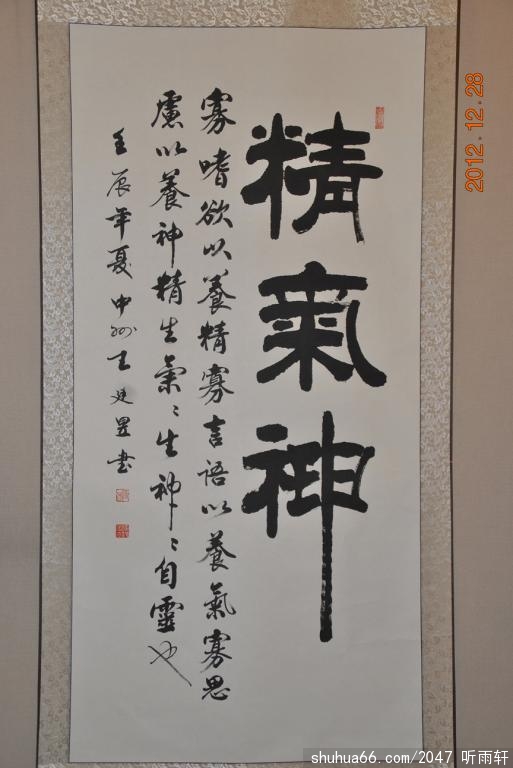 精氣神
寡嗜欲以養精寡言語以養氣寡思
慮以養神精生氣〻生神〻自靈也
壬辰年夏中州王廷昱書
2012.12.28
shuhua66.com/2047 听雨轩